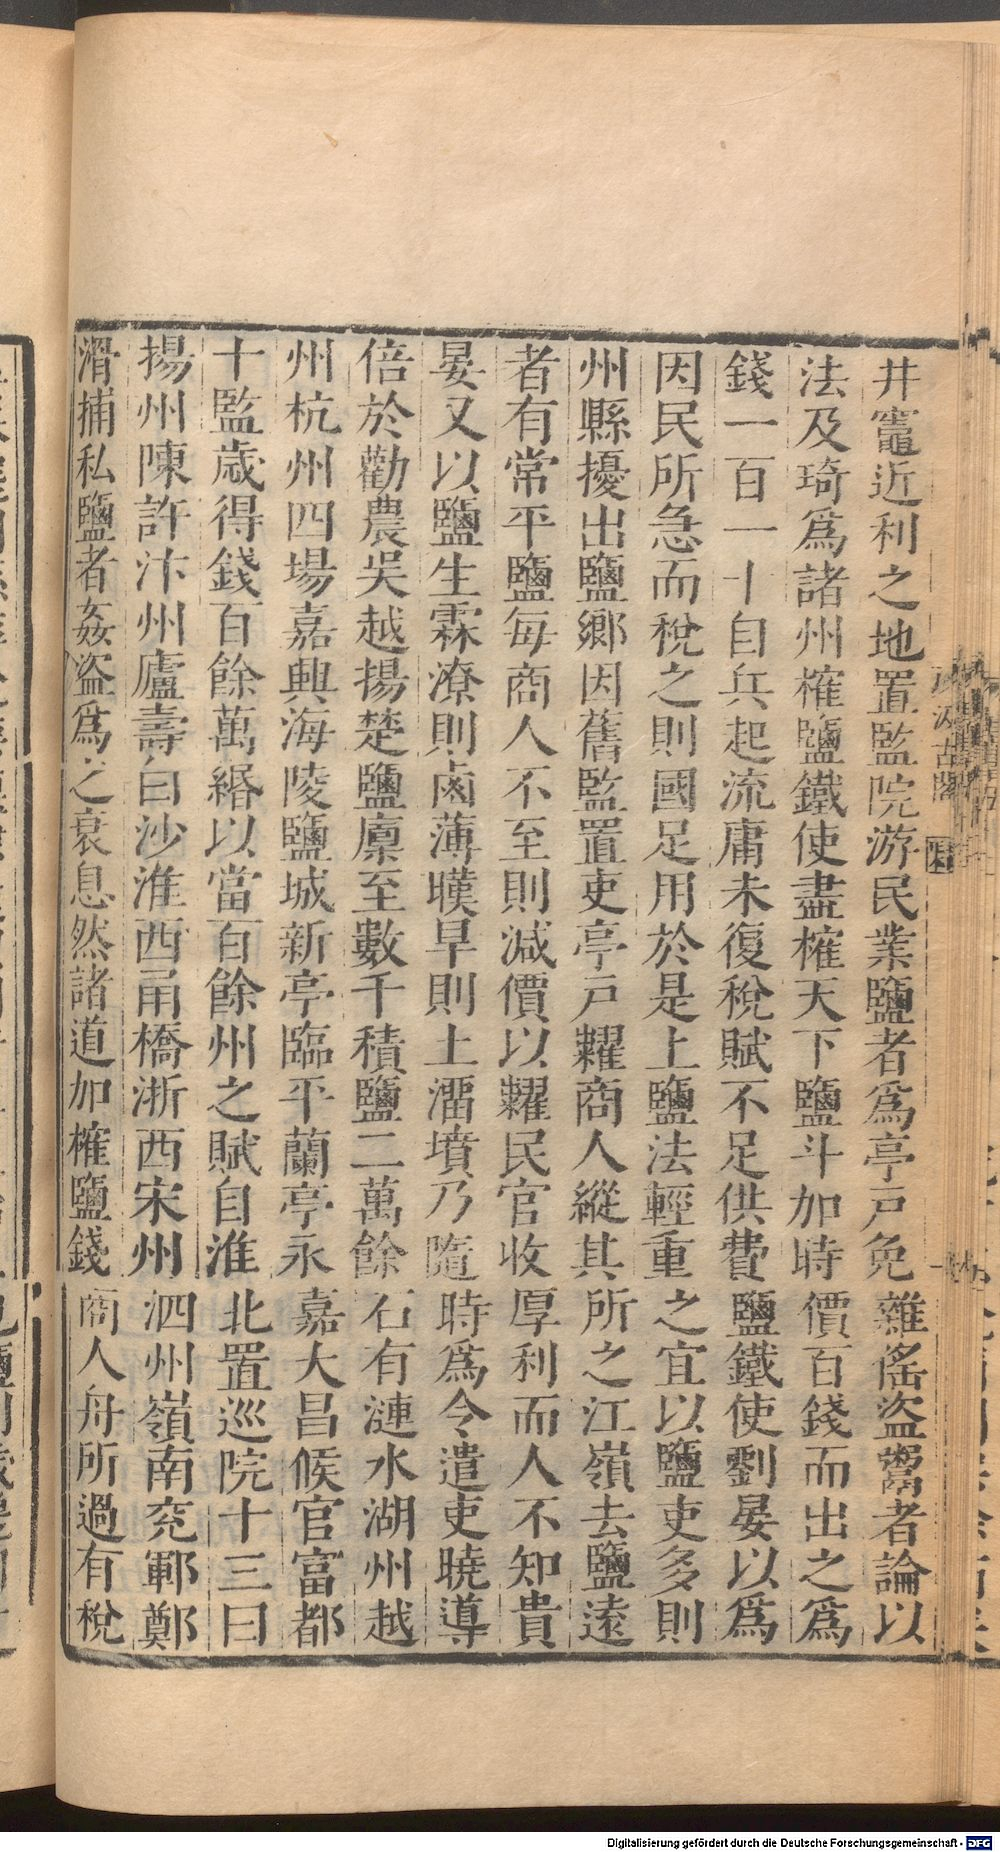 井竈近利之地置監院游民業鹽者爲亭戸免雜徭盜鬻者論以
法及琦爲諸州榷鹽鐵使盡榷天下鹽斗加時價百錢而出之爲
錢一百一十自兵起流庸未復稅賦不足供費鹽鐵使劉晏以爲
因民所急而稅之則國足用於是上鹽法輕重之宜以鹽吏多則
州縣擾出鹽鄉因舊監置吏亭戸糶商人縱其所之江嶺去鹽遠
者有常平鹽每商人不至則減價以糶民官收厚利而人不知貴
晏又以鹽生霖潦則鹵薄暵旱則土溜墳乃隨時爲令遣吏曉導
倍於勸農吳越揚楚鹽廪至數千積鹽二萬餘石有漣水湖州越
州杭州四場嘉興海陵鹽城新亭臨平蘭亭永嘉大昌候官富都
十監歲得錢百餘萬緡以當百餘州之賦自淮北置巡院十三曰
揚州陳許汴州廬壽白沙淮西甬橋浙西宋州泗州嶺南兖鄆鄭
滑捕私鹽者姦盜爲之衰息然諸道加榷鹽錢商人舟所過有稅
汲古閣
Digitalisierung gefördert durch die Deutsche Forschungsgemeinschaft - DFG